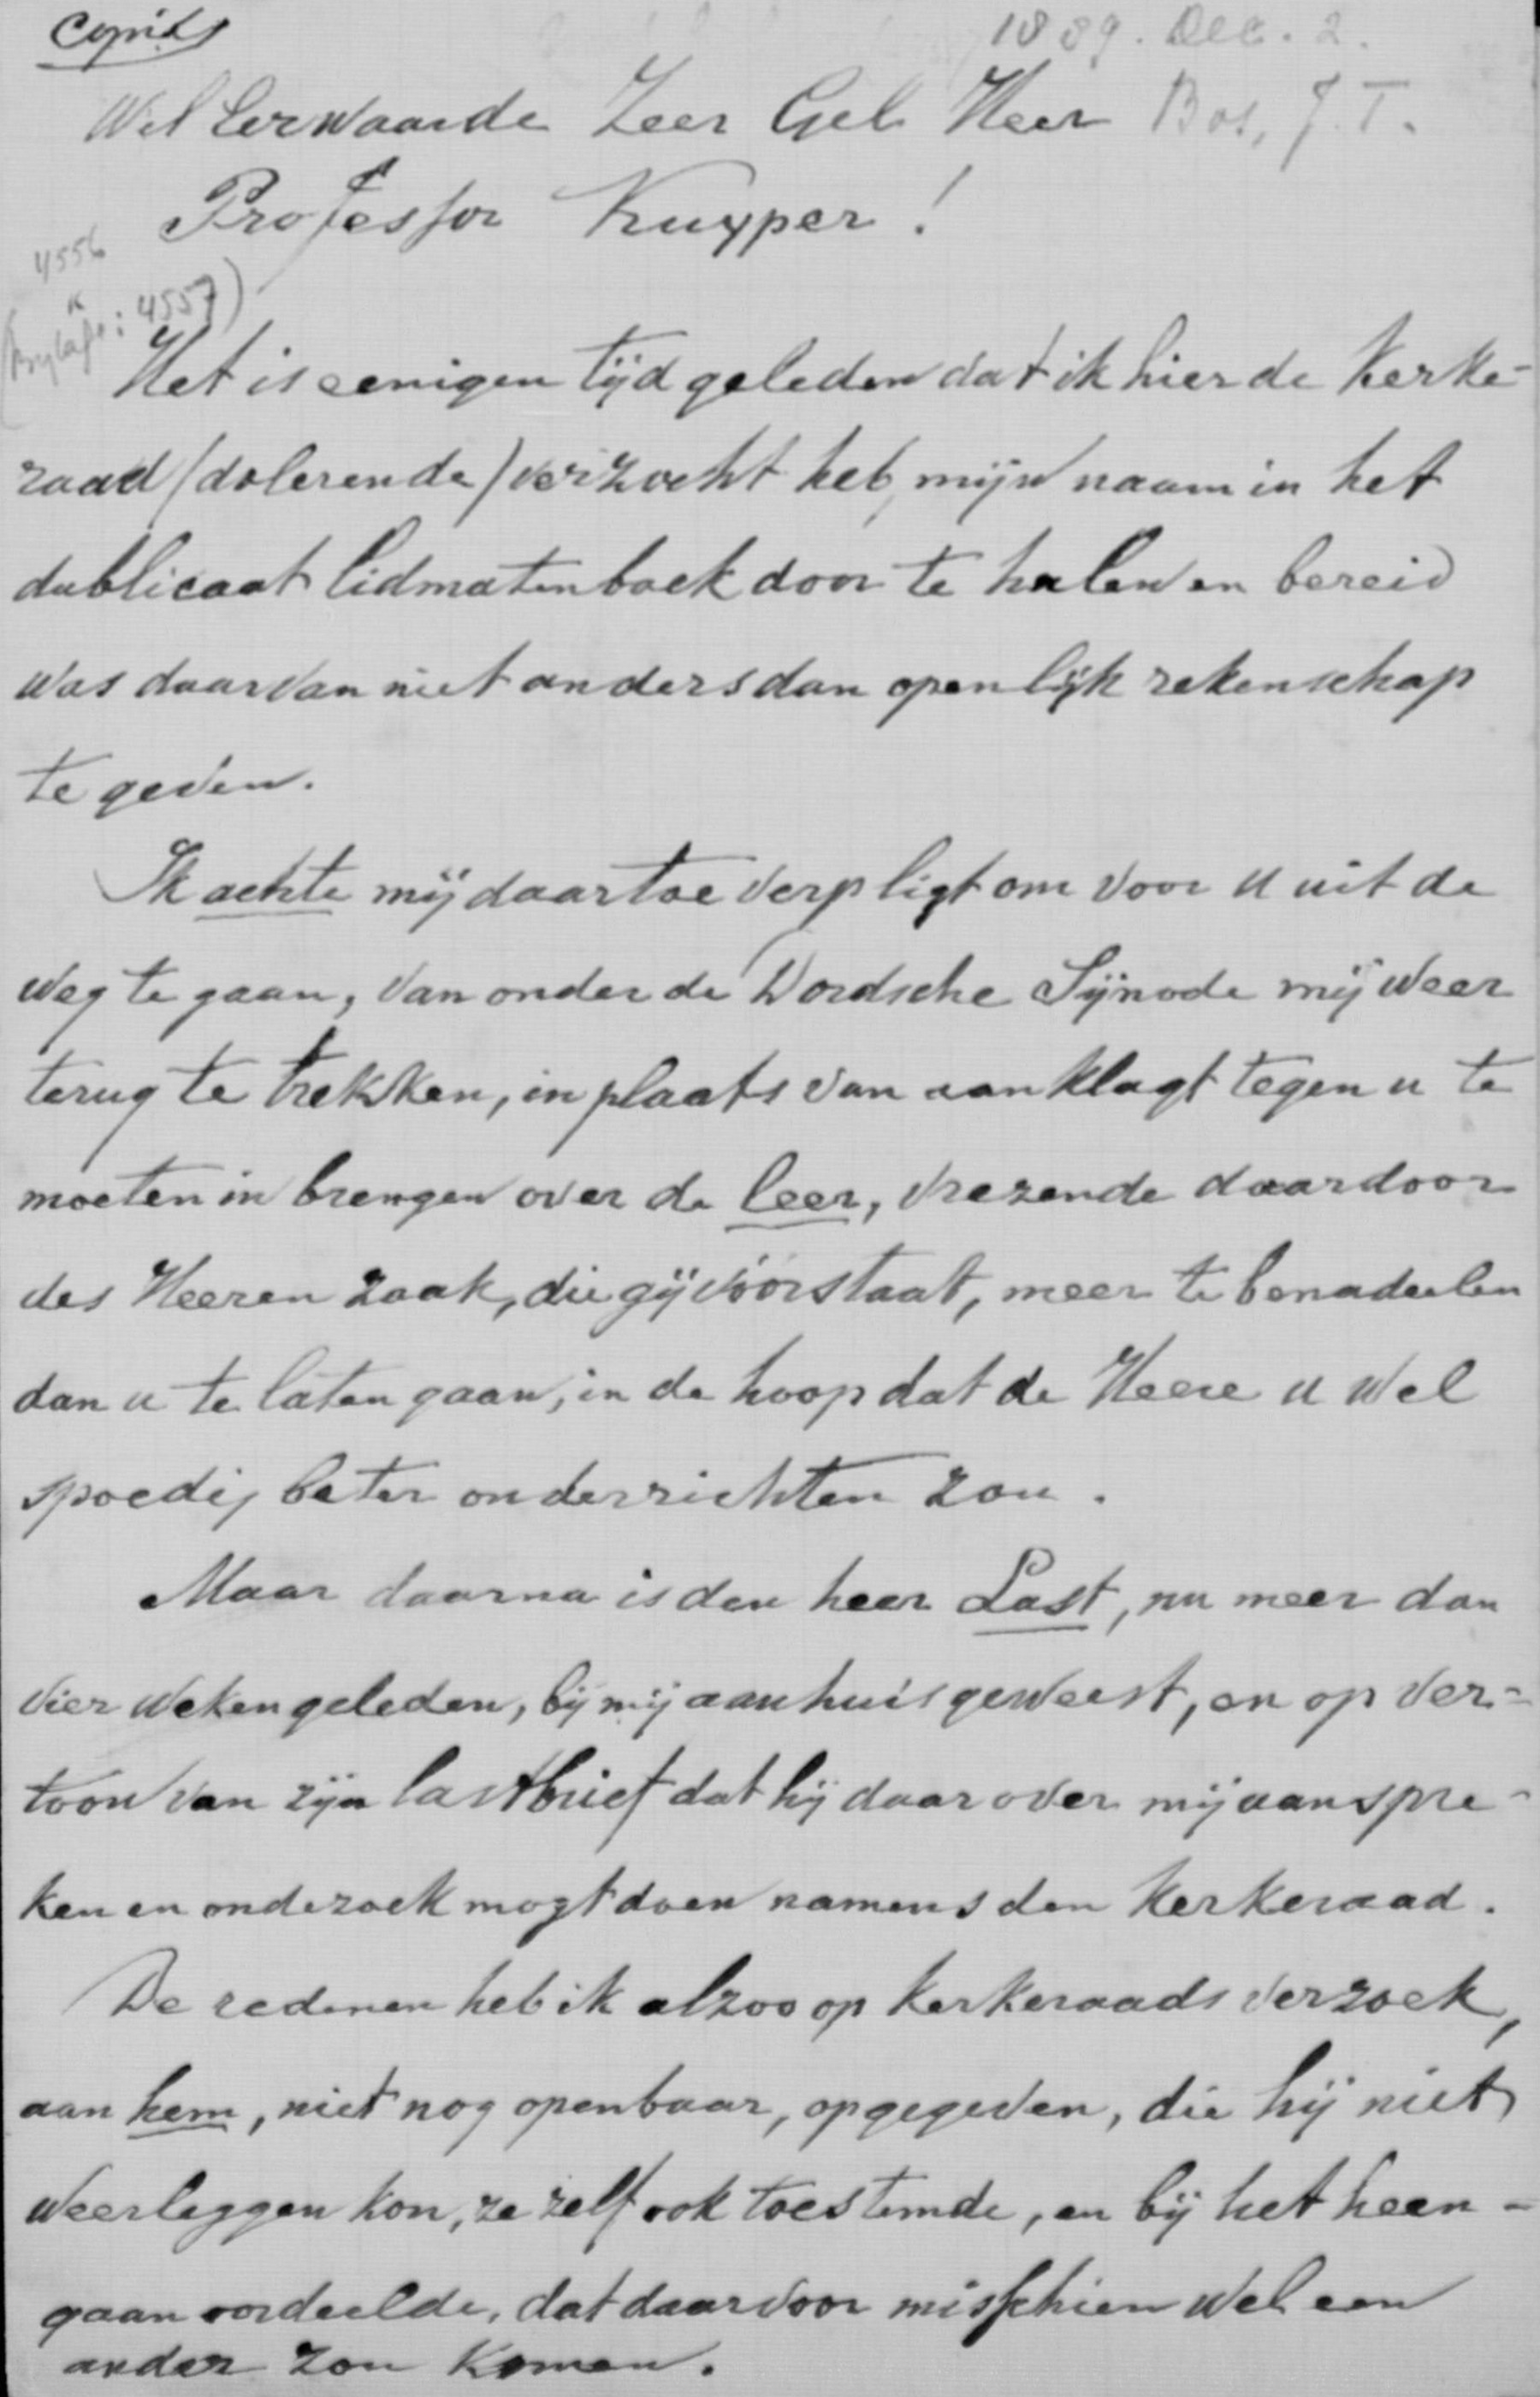 Copie
1889. Dec. 2.
Wel Eerwaarde Zeer Gel Heer Bos, J. T.
Professor Kuyper!
4556
(Bylage: 4557)
Het is eenigen tijd geleden dat ik hier de Kerke-
raad (dolerende) verzocht heb, mijn naam in het
dublicaat lidmatenboek door te halen en bereid
was daarvan niet anders dan openlijk rekenschap
te geven.
Ik achte mij daartoe verpligt om voor u uit de
weg te gaan, van onder de Dordsche Sijnode mij weer
terug te trekken, in plaats van aanklagt tegen u te
moeten in brengen over de leer, vrezende daardoor
des Heeren zaak, die gij vóórstaat, meer te benadeelen
dan u te laten gaan, in de hoop dat de Heere u wel
spoedig beter onderrichten zou.
Maar daarna is den heer Last, nu meer dan
vier weken geleden, bij mij aan huis geweest, en op ver-
toon van zijn lastbrief dat hij daarover mij aanspre-
ken en onderzoek mogt doen namens den Kerkeraad.
De redenen heb ik alzoo op Kerkeraads verzoek,
aan hem, niet nog openbaar, opgegeven, die hij niet
weerleggen kon, ze zelf ook toestemde, en bij het heen-
gaan oordeelde, dat daarvoor misschien wel een
ander zou komen.